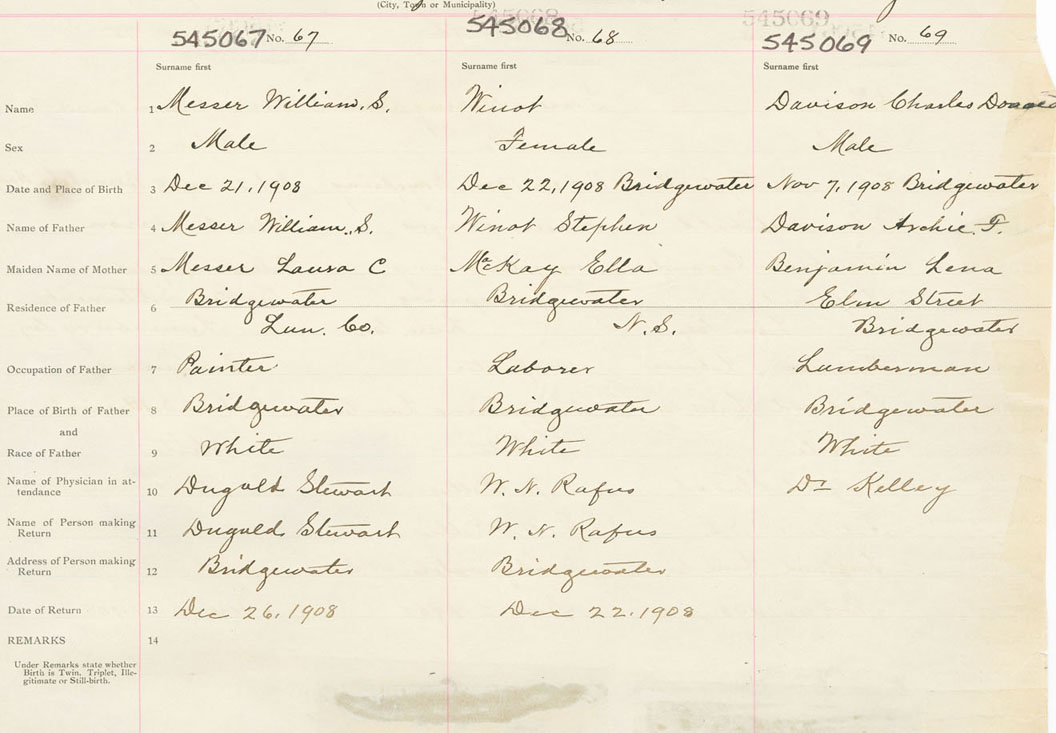 (City, Town or Municipality)
545067 No. 67 545068 No. 68 545069 No. 69
Surname first Surname first Surname first
Name 1 Messer William. S. Winot Davison Charles
Sex 2 Male Female Male
Date and Place of Birth 3 Dec 21, 1908 Dec 22, 1908 Bridgewater Nov 7, 1908 Bridgewater
Name of Father 4 Messer William. S. Winot Stephen Davison Archie. F.
Maiden Name of Mother 5 Messer Laura C McKay Ella Benjamin Lena
Residence of Father 6 Bridgewater Bridgewater Elm Street
Lun. Co. N. S. Bridgewater
Occupation of Father 7 Painter Laborer Lumberman
Place of Birth of Father 8 Bridgewater Bridgewater Bridgewater
and
Race of Father 9 White White White
Name of Physician in at-
tendance 10 Dugald Stewart W. N. Rafus Dr Kelley
Name of Person making
Return 11 Dugald Stewart W. N. Rafus
Address of Person making
Return 12 Bridgewater Bridgewater
Date of Return 13 Dec 26, 1908 Dec 22, 1908
REMARKS 14
Under Remarks state whether
Birth is Twin, Triplet, Ille-
gitimate or Still-birth.